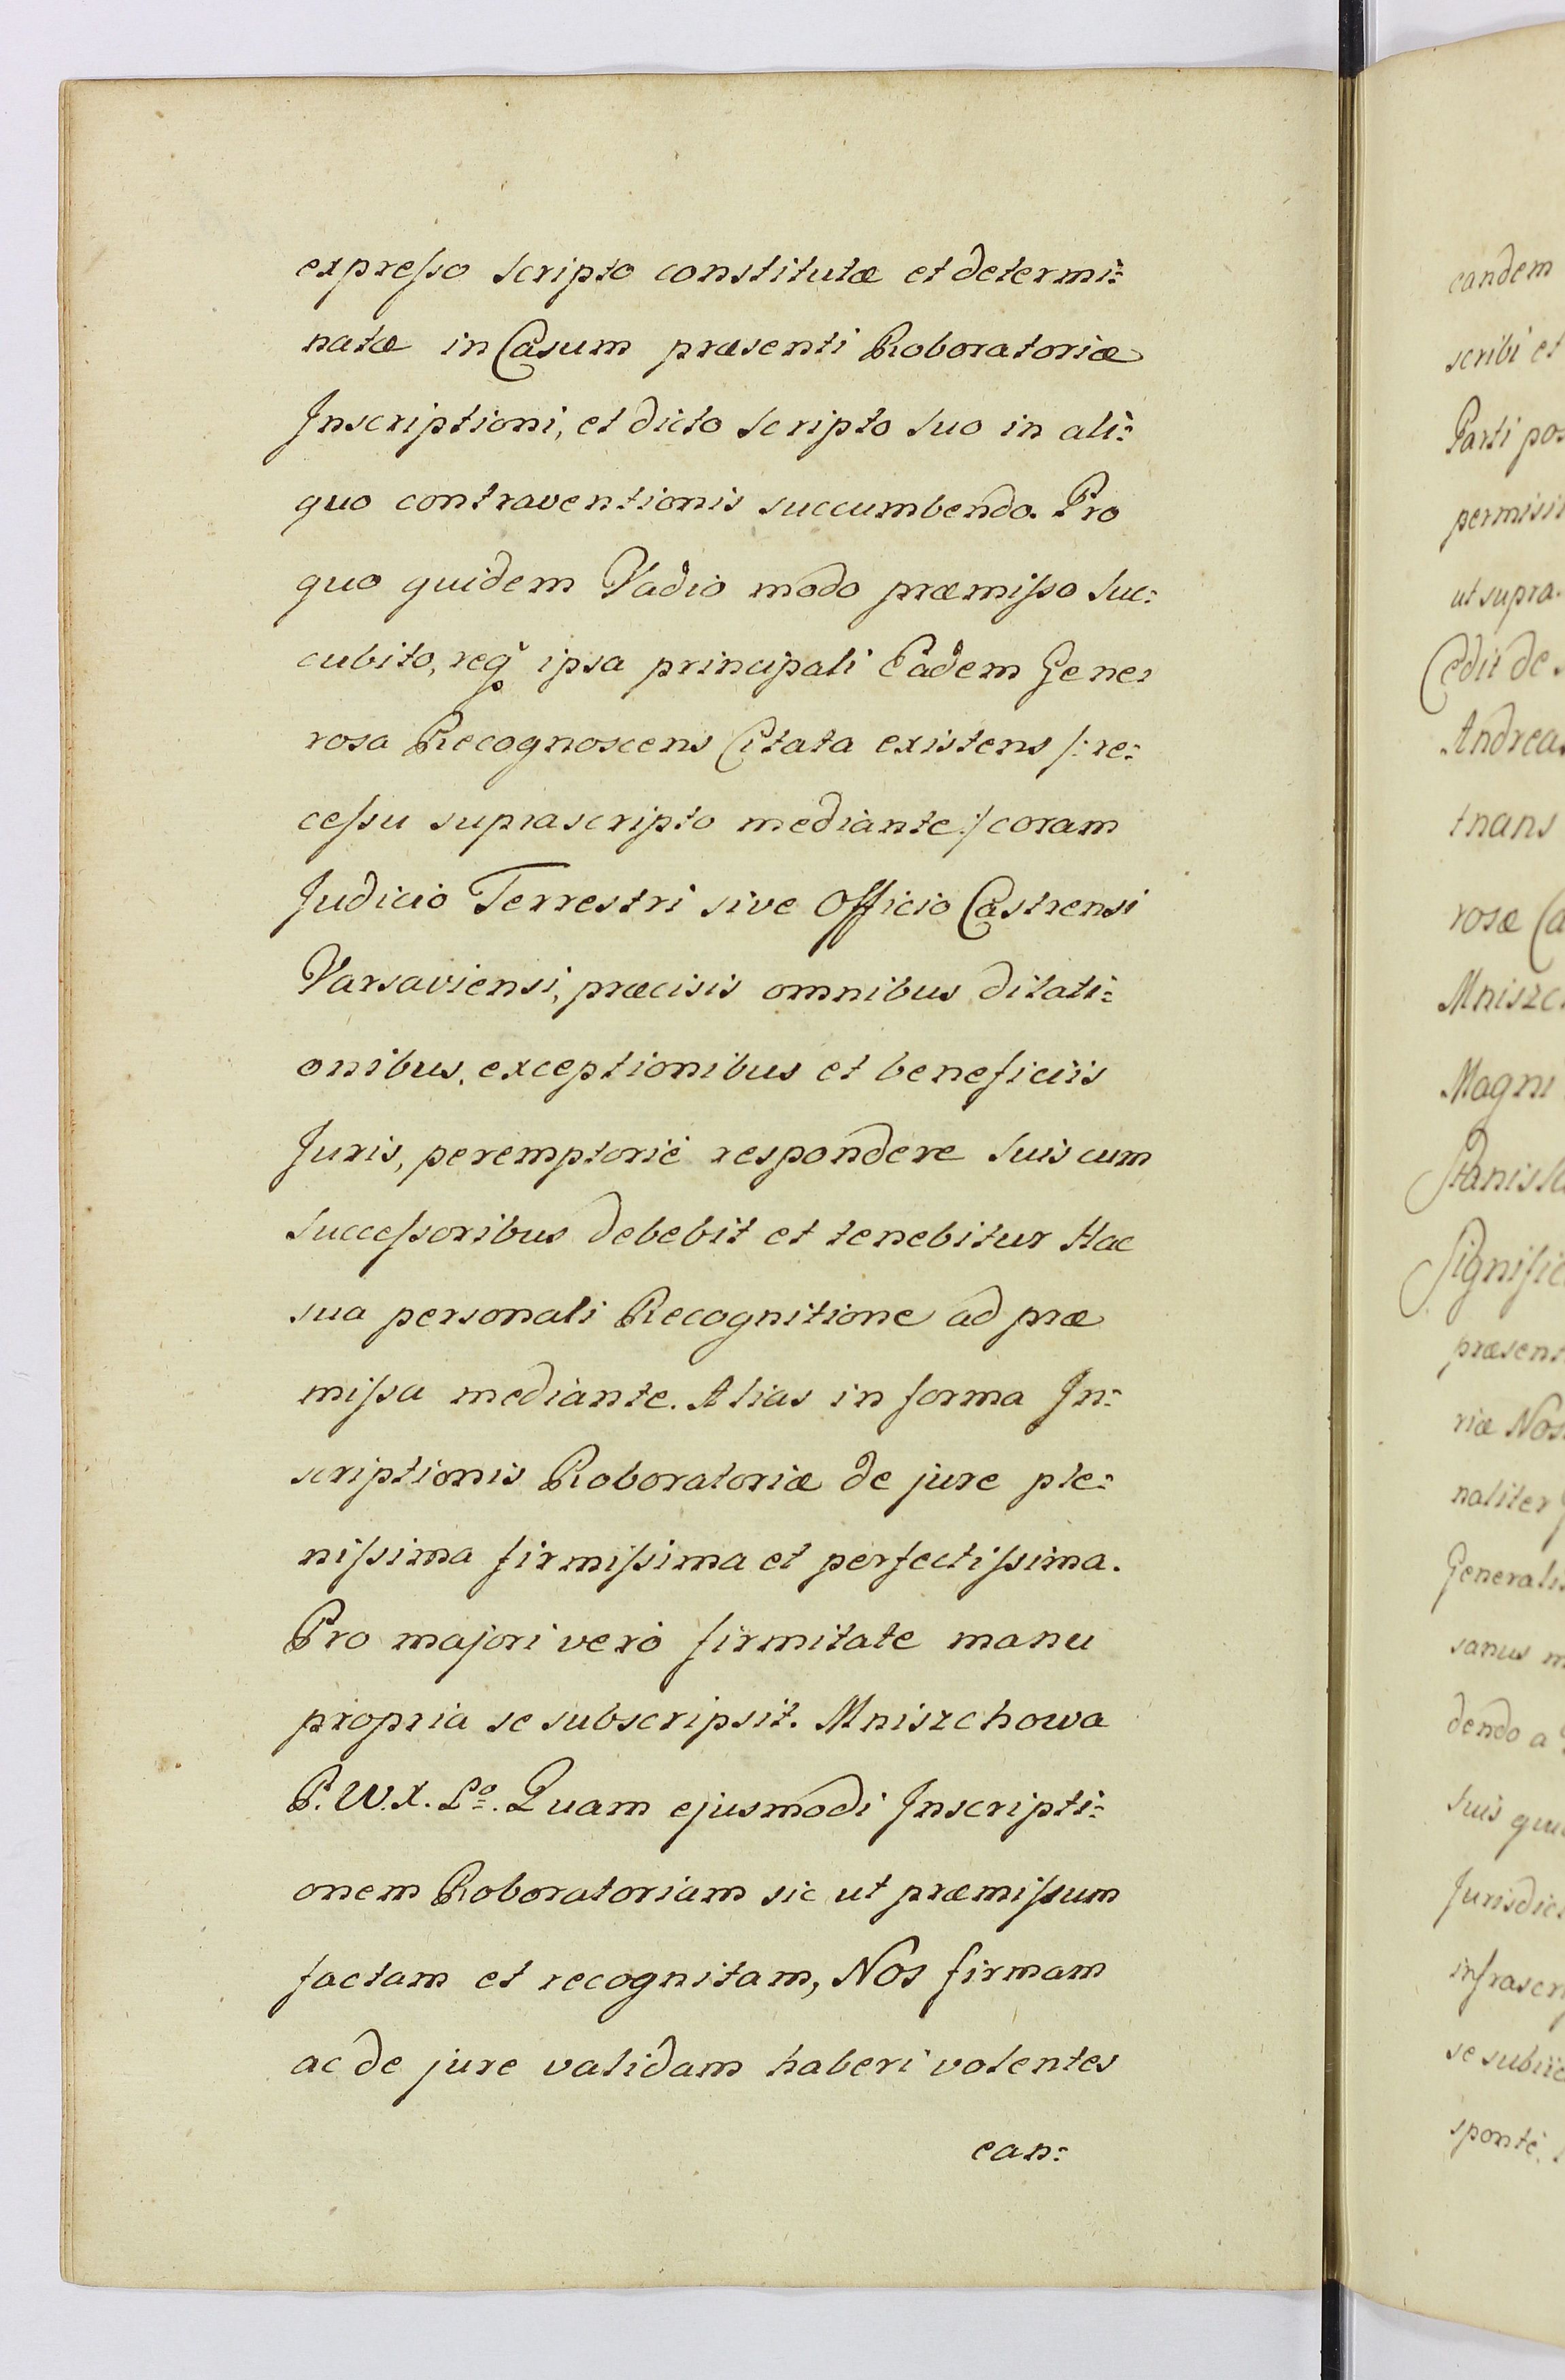 expresso scripto constitutæ et determi=
natæ in Casum præsenti Roboratoriæ
Inscriptioni, et dicto scripto suo in ali=
quo contraventionis succumbendo. Pro
quo quidem Vadio modo præmisso suc=
cubito, req ipsa principali Eadem Gene=
rosa Recognoscens Citata existens /: re=
cessu suprascripto mediante :/ coram
Judicio Terrestri sive Officio Castrensi
Varsaviensi, præcisis omnibus dilati=
onibus, exceptionibus et beneficiis
Juris, peremptoriè respondere suis cum
successoribus debebit et tenebitur Hac
sua personali Recognitione ad præ
missa mediante. Alias in forma In=
scriptionis Roboratoriæ de jure ple=
nissima firmissima et perfectissima.
Pro majori verò firmitate manu
propria se subscripsit. Mniszchowa
P. W. X. Lº. Quam ejusmodi Inscripti=
onem Roboratoriam sic ut præmissum
factam et recognitam, Nos firmam
ac de jure validam haberi volentes
ean=
candem
scribi et
Parti po=
permisi
ut supra.
Cedit de
Andreas
tnans
rosæ Ca
Mniszc
Magni
Stanisla
Signific
præsent
riæ Nos
naliter
Generalis
sanus m
dendo a
suis qui
Jurisdict
infrascri
se subiic
spontè